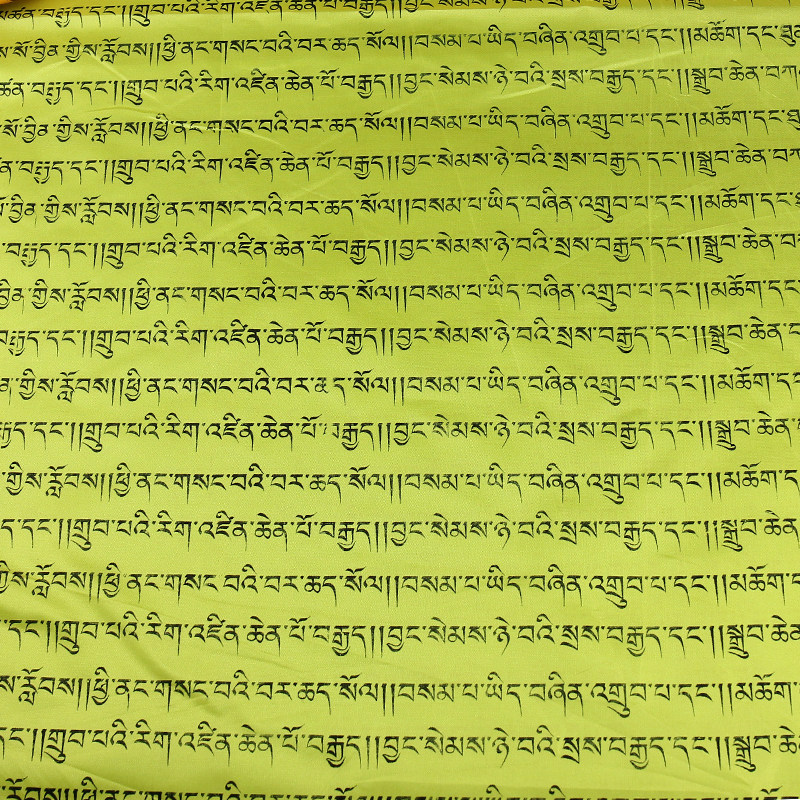 མཚན་བརྒྱད་དང་།།གྲུབ་པའི་རིག་འཛིན་ཆེན་པོ་བརྒྱད།།བྱང་སེམས་ཉེ་བའི་སྲས་བརྒྱད་དང་།།
ས་སོ་བྱིན་གྱིས་རློབས།།ཕྱི་ནང་གསང་བའི་བར་ཆད་སོལ།།བསམ་པ་ཡིད་བཞིན་འགྲུབ་པ་དང་།།མཆོག་དང་ཐུན
ཚན་བརྒྱད་དང་།།གྲུབ་པའི་རིག་འཛིན་ཆེན་པོ་བརྒྱད།།བྱང་སེམས་ཉེ་བའི་སྲས་བརྒྱད་དང་།།སྒྲུབ་ཆེན་བཀ
སོ་བྱིན་གྱིས་རློབས།།ཕྱི་ནང་གསང་བའི་བར་ཆད་སོལ།།བསམ་པ་ཡིད་བཞིན་འགྲུབ་པ་དང་།།མཆོག་དང་ཐུ
ན་བརྒྱད་དང་།།གྲུབ་པའི་རིག་འཛིན་ཆེན་པོ་བརྒྱད།།བྱང་སེམས་ཉེ་བའི་སྲས་བརྒྱད་དང་།།སྒྲུབ་ཆེན་བཀ
བྱིན་གྱིས་རློབས།།ཕྱི་ནང་གསང་བའི་བར་ཆད་སོལ།།བསམ་པ་ཡིད་བཞིན་འགྲུབ་པ་དང་།།མཆོག་དང་
་བརྒྱད་དང་།།གྲུབ་པའི་རིག་འཛིན་ཆེན་པོ་བརྒྱད།།བྱང་སེམས་ཉེ་བའི་སྲས་བརྒྱད་དང་།།སྒྲུབ་ཆེན་བ
བྱིན་གྱིས་རློབས།།ཕྱི་ནང་གསང་བའི་བར་ཆད་སོལ།།བསམ་པ་ཡིད་བཞིན་འགྲུབ་པ་དང་།།མཆོག་དང་
བརྒྱད་དང་།།གྲུབ་པའི་རིག་འཛིན་ཆེན་པོ་བརྒྱད།།བྱང་སེམས་ཉེ་བའི་སྲས་བརྒྱད་དང་།།སྒྲུབ་ཆེན་བ
ན་གྱིས་རློབས།།ཕྱི་ནང་གསང་བའི་བར་ཆད་སོལ།།བསམ་པ་ཡིད་བཞིན་འགྲུབ་པ་དང་།།མཆོག་དང
རྒྱད་དང་།།གྲུབ་པའི་རིག་འཛིན་ཆེན་པོ་བརྒྱད།།བྱང་སེམས་ཉེ་བའི་སྲས་བརྒྱད་དང་།།སྒྲུབ་ཆེན་
་གྱིས་རློབས།།ཕྱི་ནང་གསང་བའི་བར་ཆད་སོལ།།བསམ་པ་ཡིད་བཞིན་འགྲུབ་པ་དང་།།མཆོག་ད
ད་དང་།།གྲུབ་པའི་རིག་འཛིན་ཆེན་པོ་བརྒྱད།།བྱང་སེམས་ཉེ་བའི་སྲས་བརྒྱད་དང་།།སྒྲུབ་ཆེན
གྱིས་རློབས།།ཕྱི་ནང་གསང་བའི་བར་ཆད་སོལ།།བསམ་པ་ཡིད་བཞིན་འགྲུབ་པ་དང་།།མཆོག་
་དང་།།གྲུབ་པའི་རིག་འཛིན་ཆེན་པོ་བརྒྱད།།བྱང་སེམས་ཉེ་བའི་སྲས་བརྒྱད་དང་།།སྒྲུབ་ཆེན
ས་རློབས།།ཕྱི་ནང་གསང་བའི་བར་ཆད་སོལ།།བསམ་པ་ཡིད་བཞིན་འགྲུབ་པ་དང་།།མཆོག
དང་།།གྲུབ་པའི་རིག་འཛིན་ཆེན་པོ་བརྒྱད།།བྱང་སེམས་ཉེ་བའི་སྲས་བརྒྱད་དང་།།སྒྲུབ་ཆེ